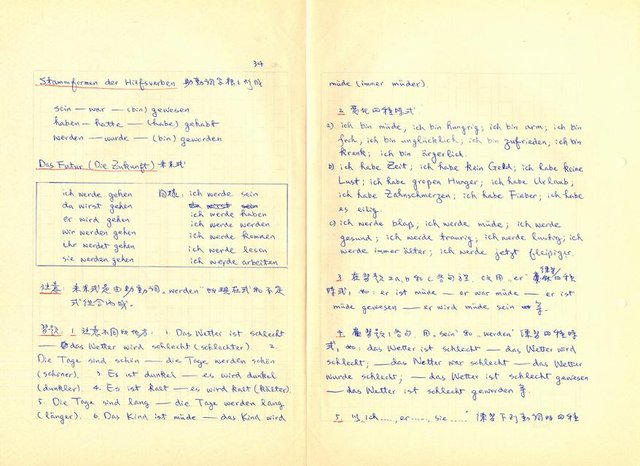 34
Stammformen der Hilfsverben 助動詞字根之形成
sein — war — (bin) gewesen
haben — hatte — (habe) gehabt
werden — wurde — (bin) geworden
Das Futur (Die Zukunft) 未來式
ich werde gehen 同樣: ich werde sein
du wirst gehen
er wird gehen ich werde haben
wir werden gehen ich werde werden
ihr werdet gehen ich werde kommen
sie werden gehen ich werde lesen
ich werde arbeiten
注意 未來式是由助動詞„werden"的現在式和不定
式組合而成。
習題 1 注意不同的地方: 1. Das Wetter ist schlecht
— das Wetter wird schlecht (schlechter). 2.
Die Tage sind schön — die Tage werden schön
(schöner). 3. Es ist dunkel — es wird dunkel
(dunkler). 4. Es ist kalt — es wird kalt (kälter).
5. Die Tage sind lang — die Tage werden lang
(länger). 6. Das Kind ist müde — das Kind wird
müde (immer müder).
2. 變化四種時式
a) ich bin müde, ich bin hungrig; ich bin arm; ich bin
froh, ich bin unglücklich; ich bin zufrieden; ich bin
krank; ich bin ärgerlich.
b) ich habe Zeit; ich habe kein Geld; ich habe keine
Lust; ich habe großen Hunger; ich habe Urlaub;
ich habe Zahnschmerzen; ich habe Fieber; ich habe
es eilig.
c) ich werde blaß, ich werde müde; ich werde
gesund; ich werde traurig, ich werde lustig; ich
werde immer älter; ich werde jetzt fleißiger.
3. 在習題 2 a, b 和 c 各句型 改用„er" 練習四種
時式, 如: er ist müde — er war müde — er ist
müde gewesen — er wird müde sein 等.
習題 1 各句, 用„sein" 和„werden" 練習四種時
式, 如: das Wetter ist schlecht — das Wetter wird
schlecht; — das Wetter war schlecht — das Wetter
wurde schlecht; — das Wetter ist schlecht gewesen
— das Wetter ist schlecht geworden 等.
5. 以„ich ...., er ...., sie ...." 練習下列動詞的四種